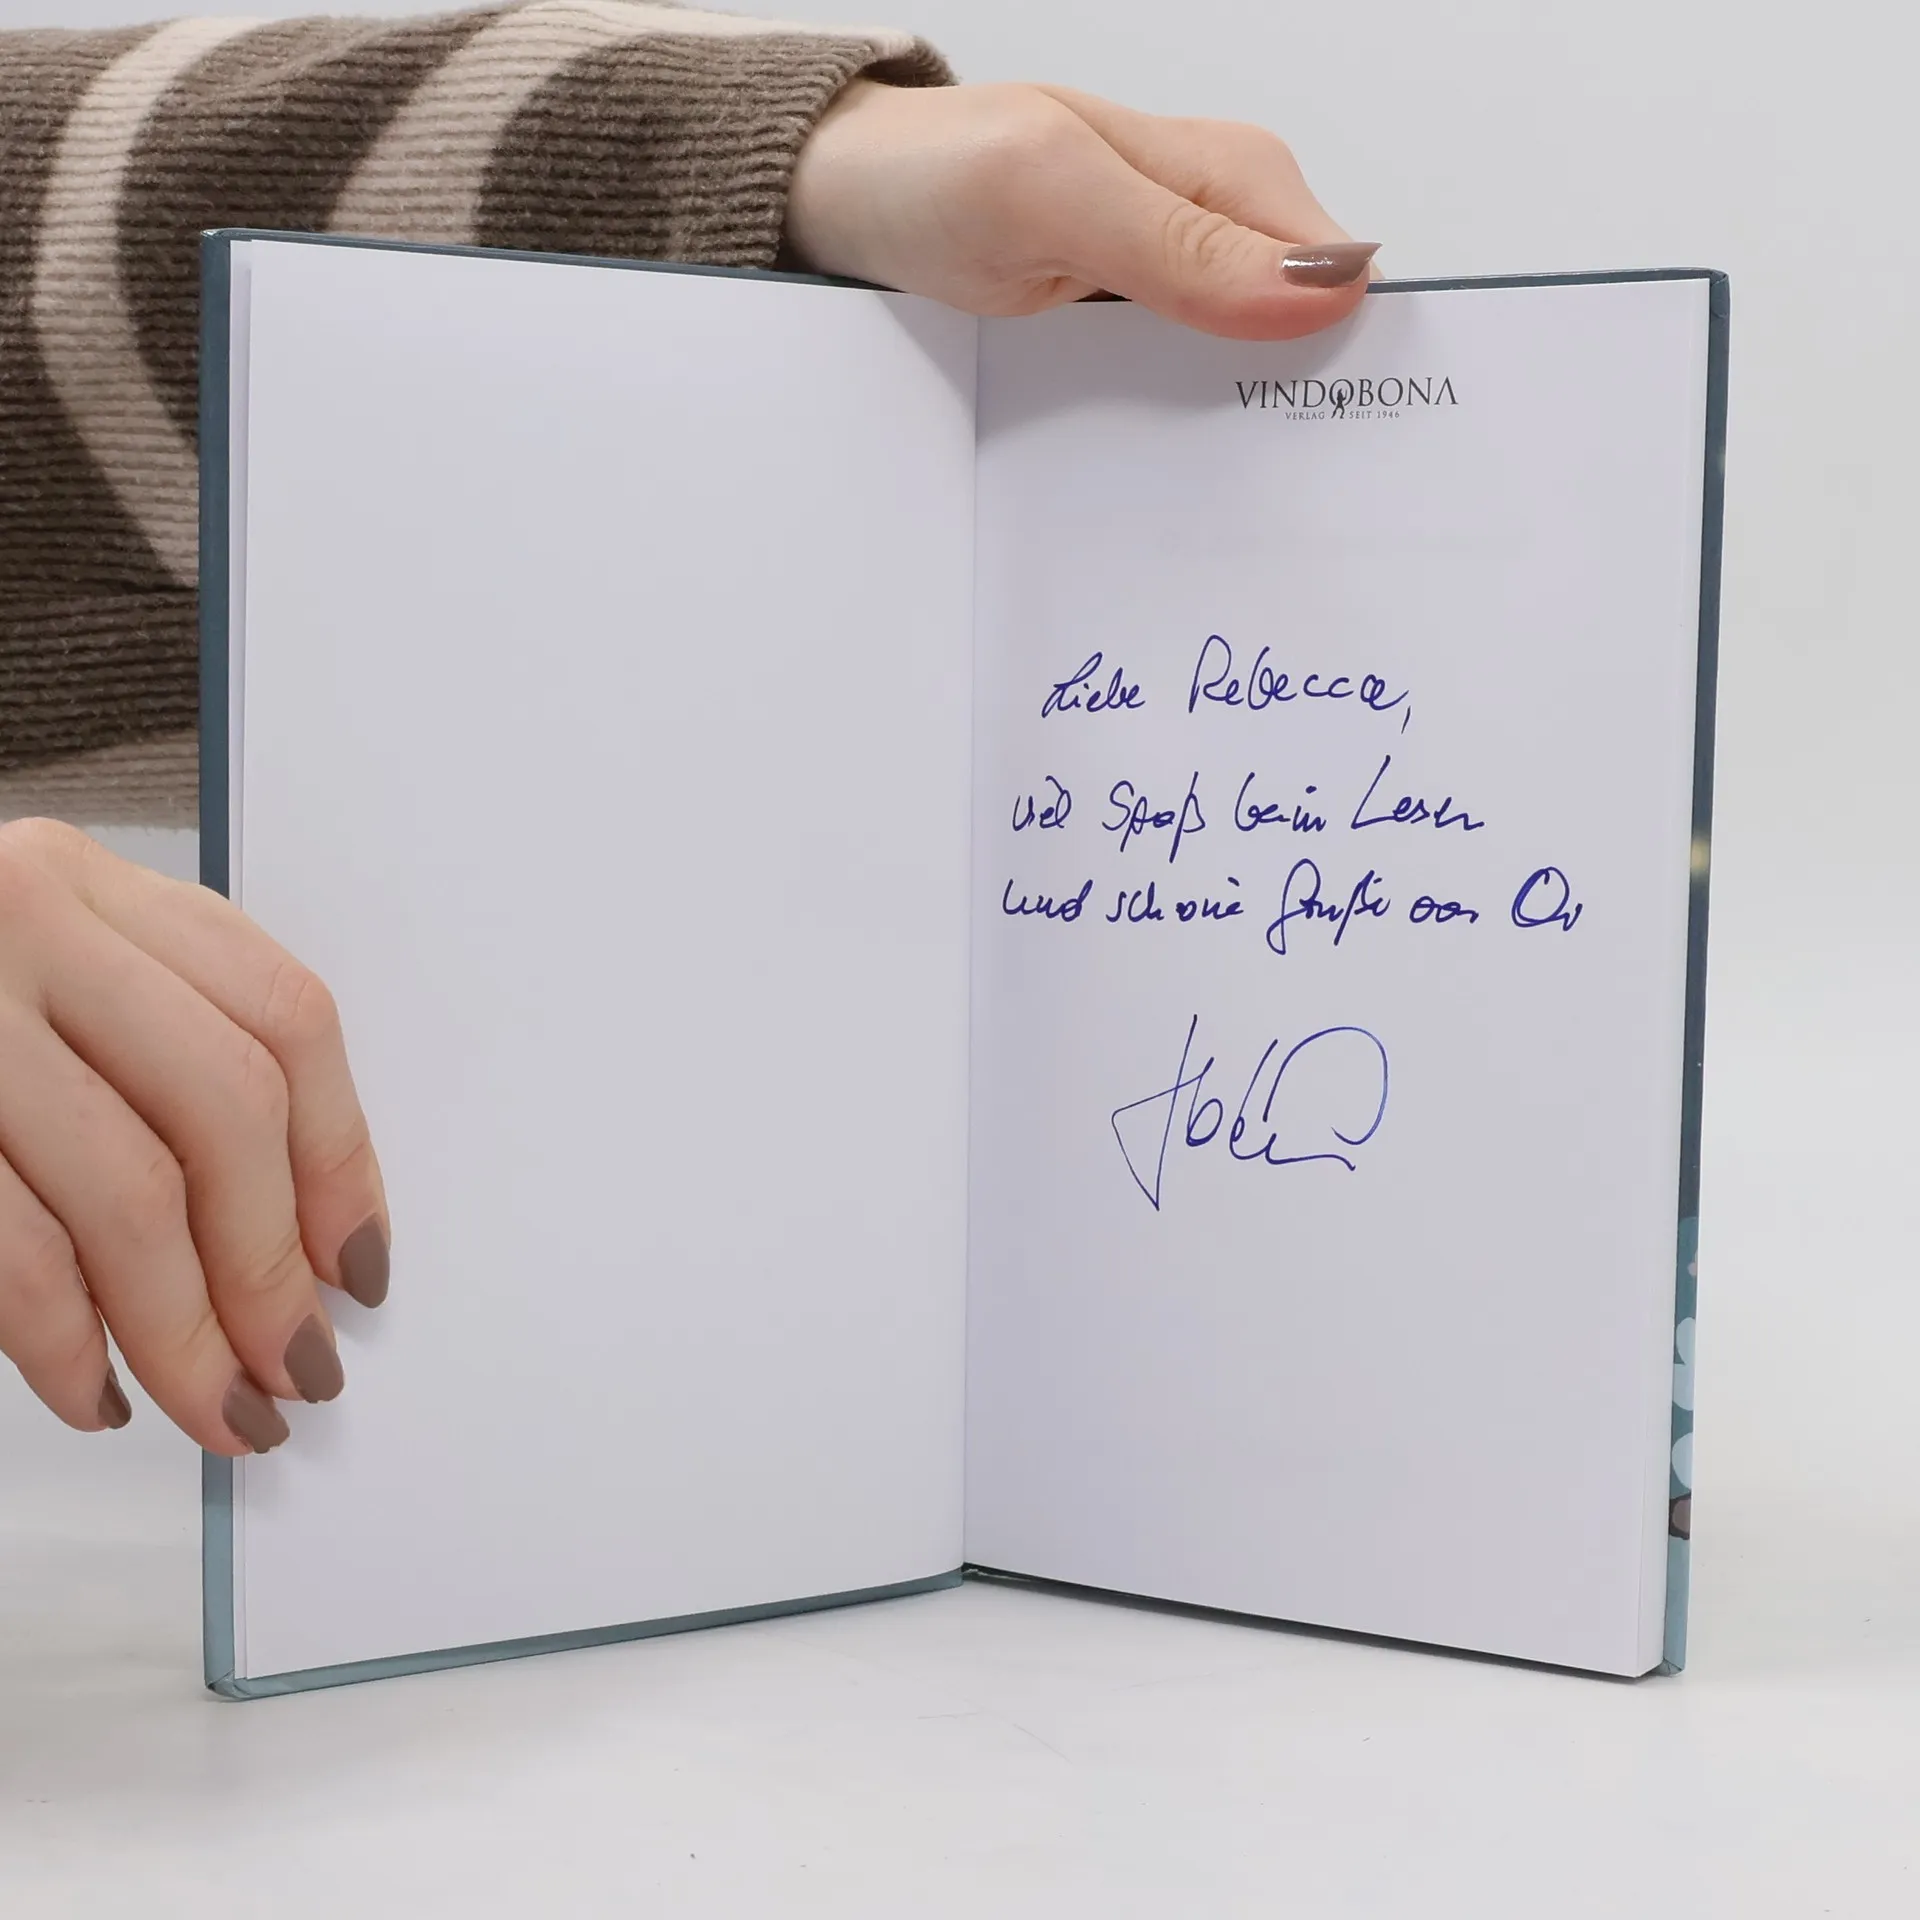 VINDOBONA
VERLAG SEIT 1946
Liebe Rebecca,
viel Spaß beim Lesen
und schöne Grüße